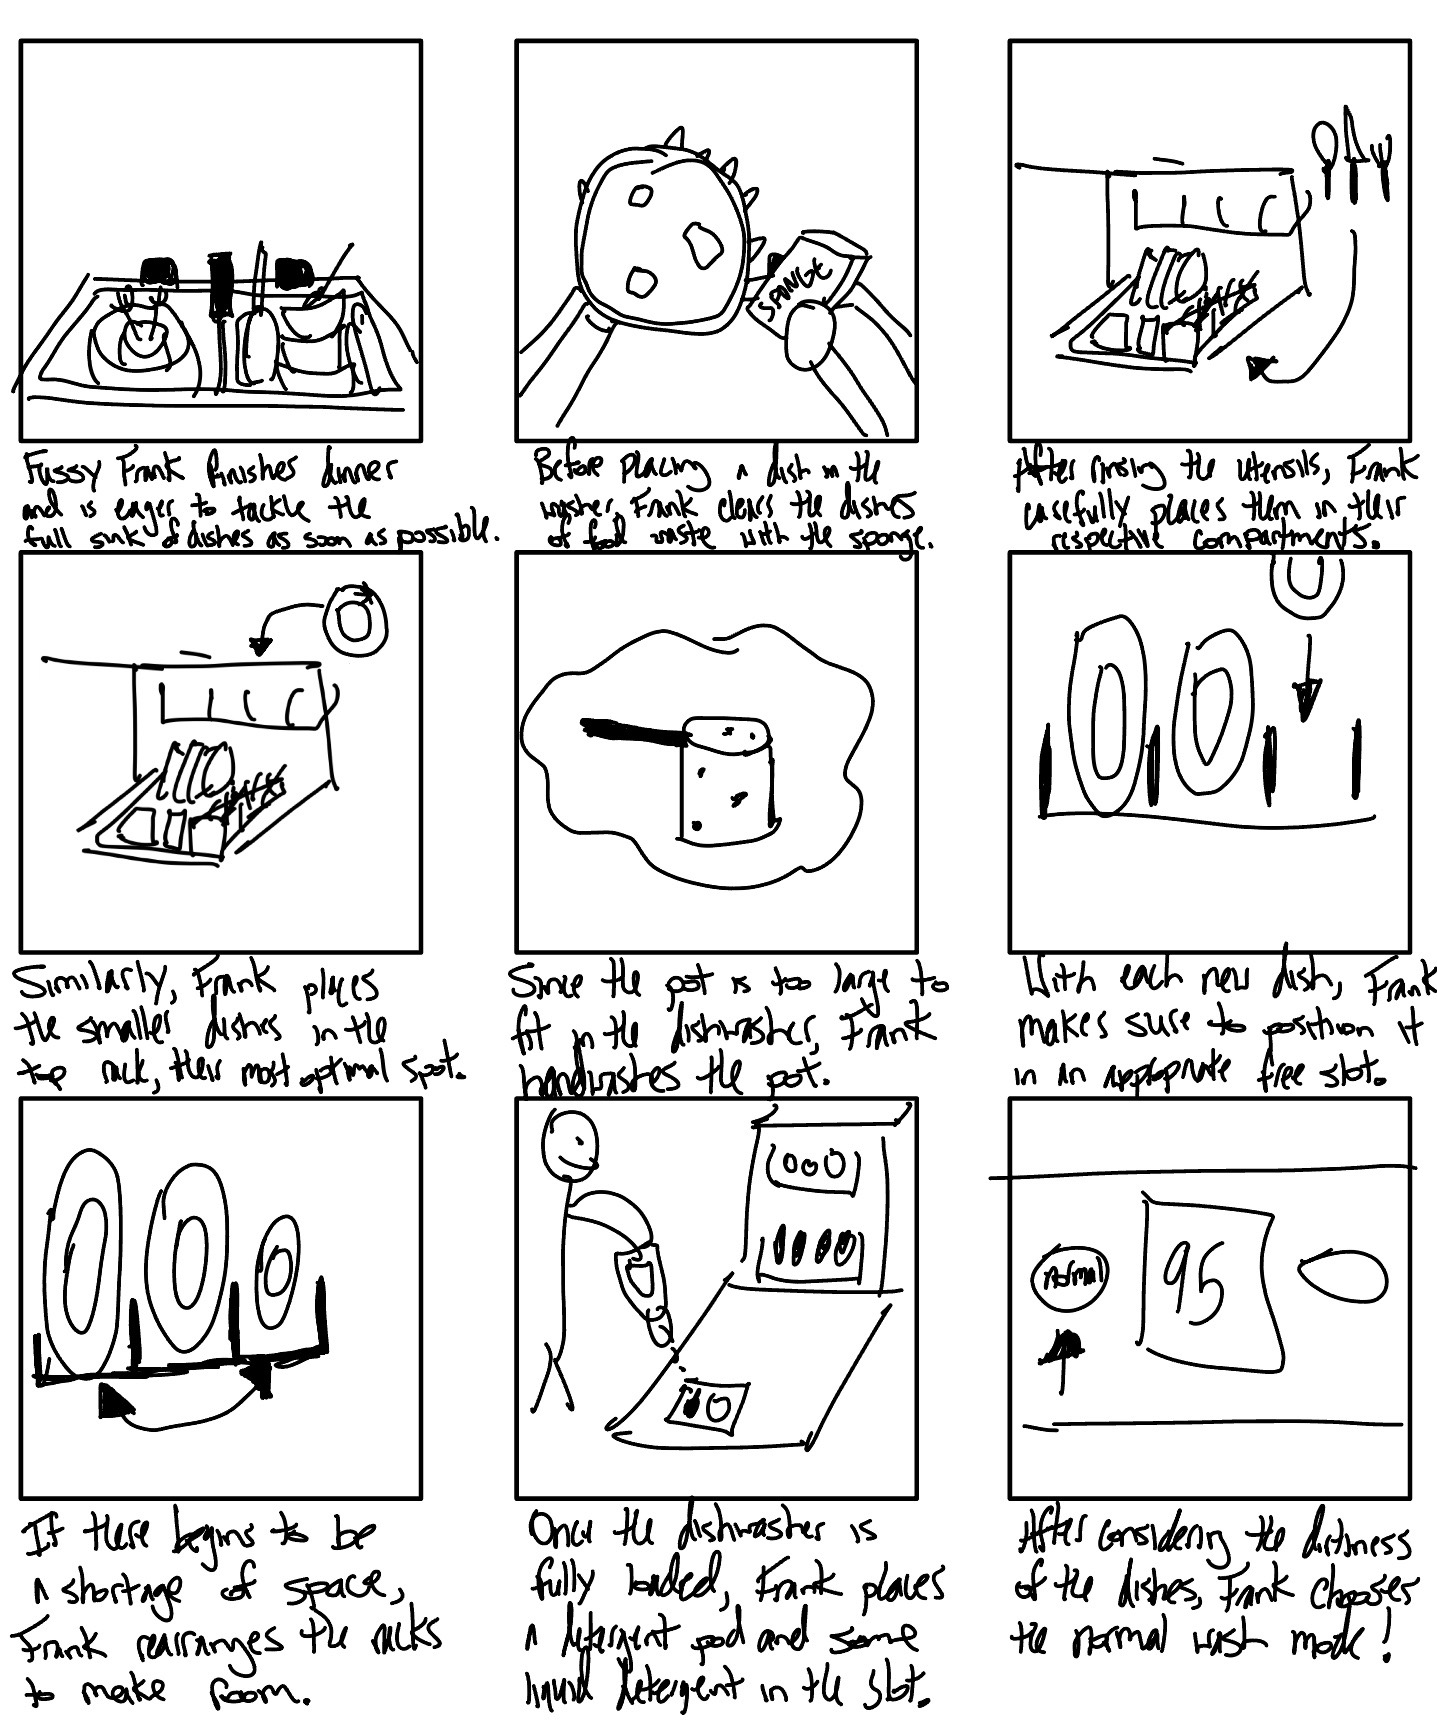 SPONGE
Fussy Frank finishes dinner
and is eager to tackle the
full sink of dishes as soon as possible.
Before placing a dish in the
washer, Frank clears the dishes
of food waste with the sponge.
After rinsing the utensils, Frank
carefully places them in their
respective compartments.
Similarly, Frank places
the smaller dishes in the
top rack, their most optimal spot.
Since the pot is too large to
fit in the dishwasher, Frank
handwashes the pot.
With each new dish, Frank
makes sure to position it
in an appropriate free slot.
If there begins to be
a shortage of space,
Frank rearranges the racks
to make room.
Once the dishwasher is
fully loaded, Frank places
a detergent pod and some
liquid detergent in the slot.
Normal
95
After considering the dirtiness
of the dishes, Frank chooses
the normal wash mode!